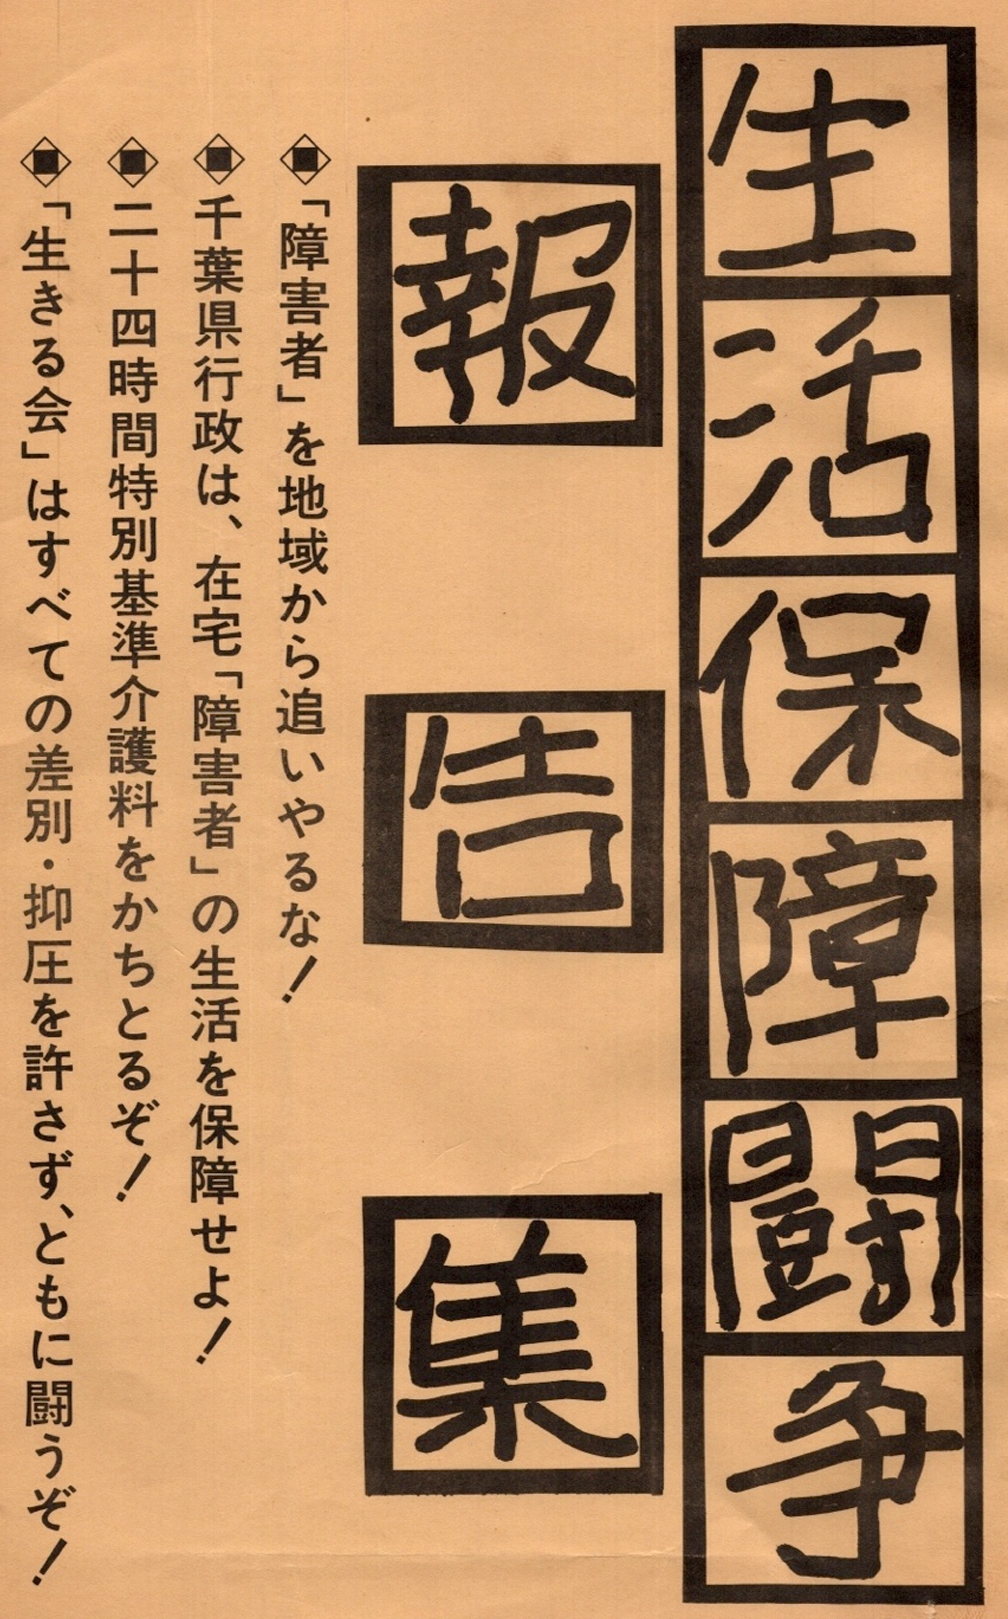 生活保障闘争
報告集
「障害者」を地域から追いやるな!
千葉県行政は、在宅「障害者」の生活を保障せよ!
二十四時間特別基準介護料をかちとるぞ!
「生きる会」はすべての差別・抑圧を許さず、ともに闘うぞ!